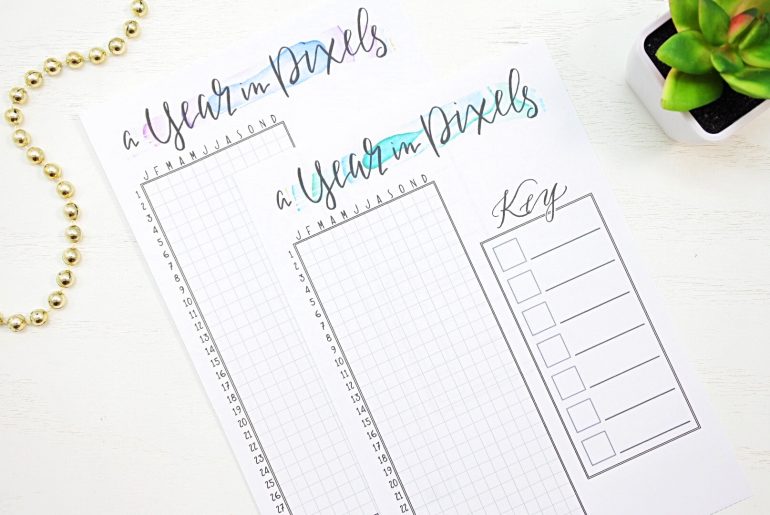 a Year in Pixels
J F M A M J J A S O N D
1
2
3
4
5
6
7
8
9
10
11
12
13
14
15
16
17
18
19
20
21
22
23
24
25
26
27
a Year in Pixels
J F M A M J J A S O N D
1
2
3
4
5
6
7
8
9
10
11
12
13
14
15
16
17
18
19
20
21
22
Key